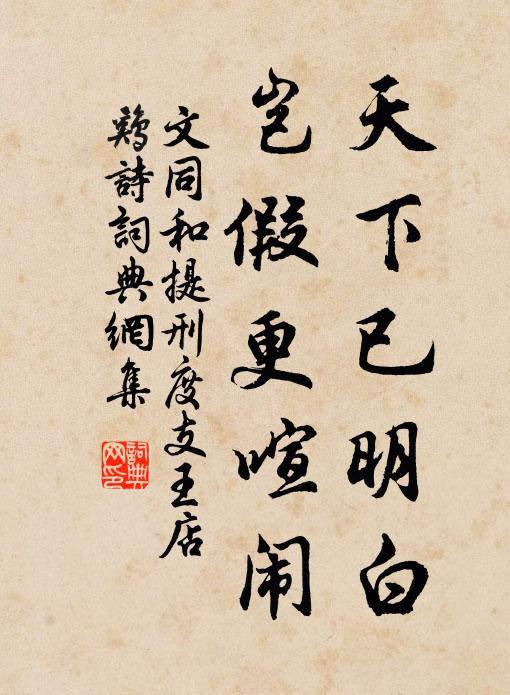 天下已明白
岂假更喧闹
文同和提刑度支王店
鷄詩詞典網集
詞典
网印